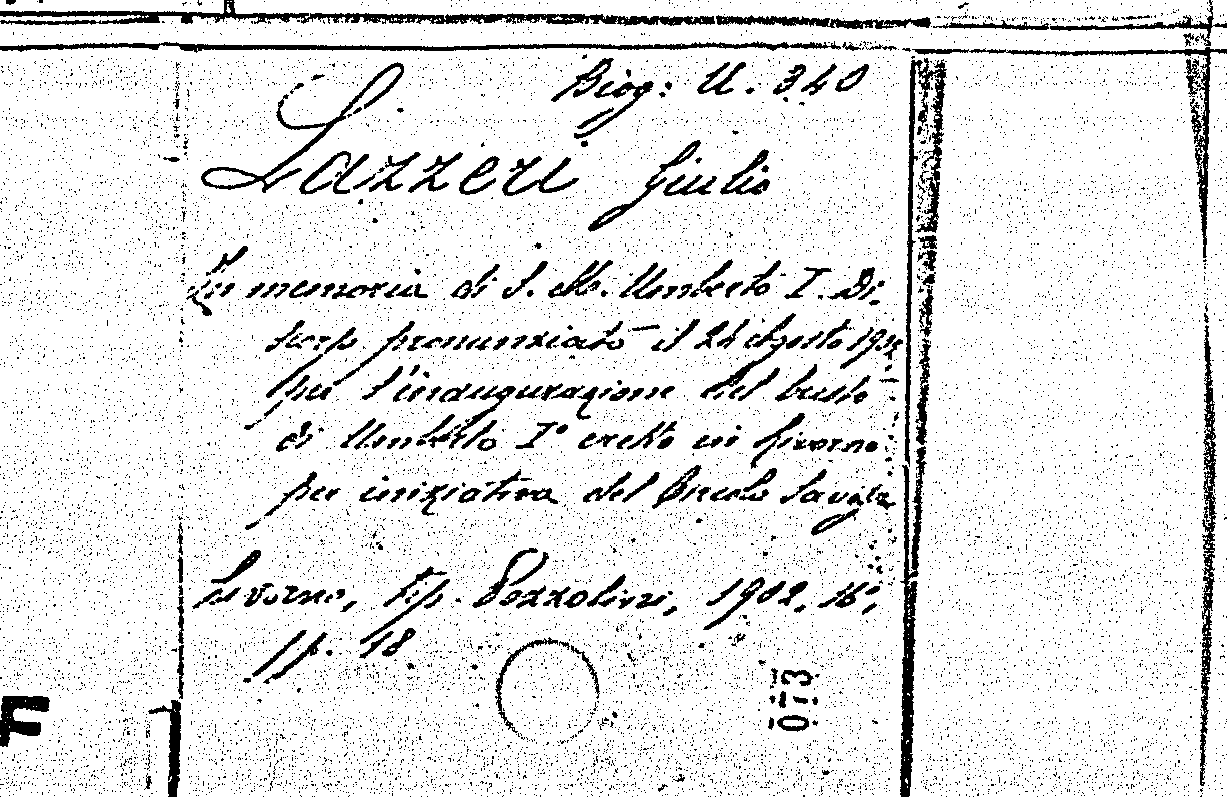 Biog: U. 340
Lazzeri Giulio
Per memoria di S. M. Umberto I. Di-
scorso pronunziato il 24 Agosto 1902
per l'inaugurazione del busto
di Umberto I° eretto in Livorno
per iniziativa del Circolo Savoia
Livorno, tip. Pozzolini, 1902, 16°,
pp. 18
073
F